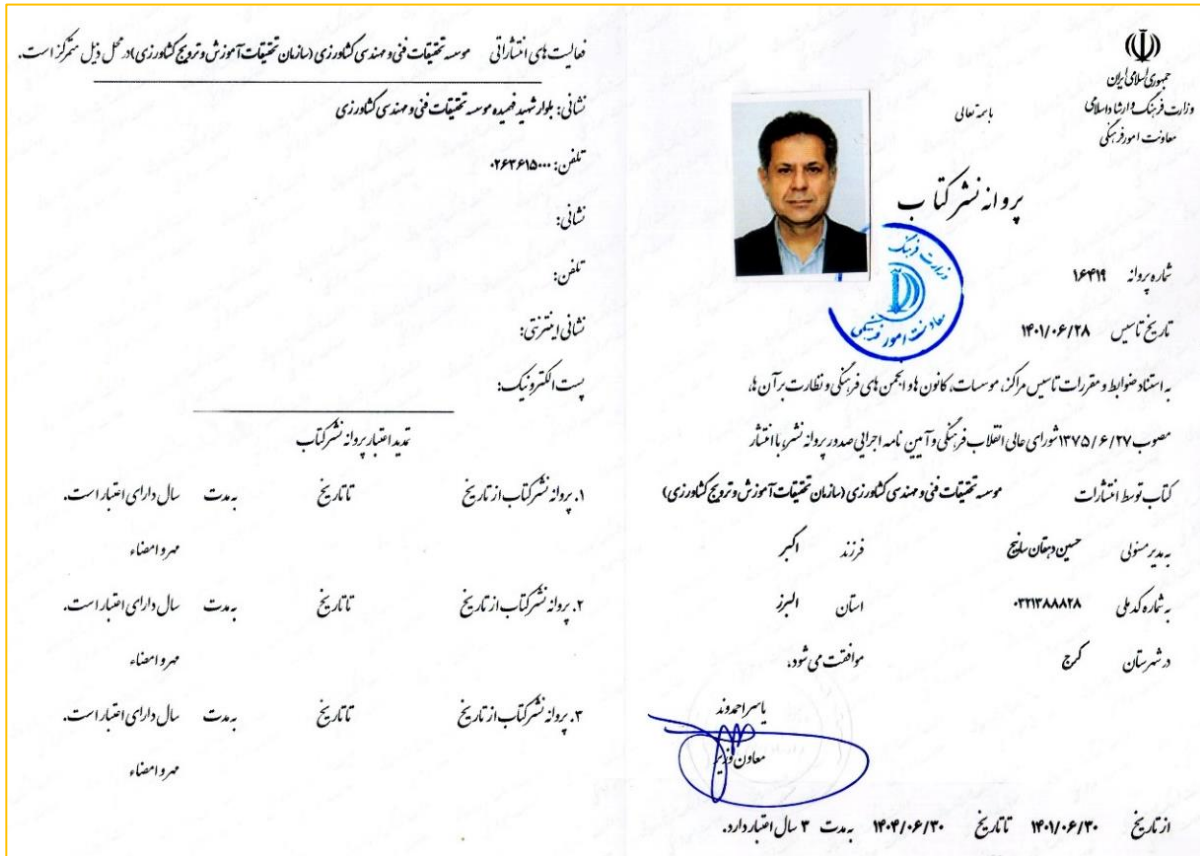 جمهوری اسلامی ایران
وزارت فرهنگ و ارشاد اسلامی
معاونت امور فرهنگی
باسمه تعالی
پروانه نشر کتاب
شماره پروانه ۱۶۴۱۹
تاریخ تاسیس ۱۴۰۱/۰۶/۲۸
به استناد ضوابط و مقررات تاسیس مراکز، موسسات، کانون ها و انجمن های فرهنگی و نظارت بر آن ها،
مصوب ۱۳۷۵/۶/۲۷ شورای عالی انقلاب فرهنگی و آیین نامه اجرایی صدور پروانه نشر، با انتشار
کتاب توسط انتشارات موسسه تحقیقات فنی و مهندسی کشاورزی (سازمان تحقیقات آموزش و ترویج کشاورزی)
به مدیر مسئولی حسین دهقان سانیج فرزند اکبر
به شماره کد ملی ۰۳۲۱۳۸۸۸۲۸ استان البرز
در شهرستان کرج موافقت می شود،
یاسر احمدوند
معاون وزیر
از تاریخ ۱۴۰۱/۰۶/۳۰ تا تاریخ ۱۴۰۴/۰۶/۳۰ به مدت ۳ سال اعتبار دارد.
وزارت فرهنگ
معاونت امور فرهنگی
فعالیت های انتشاراتی موسسه تحقیقات فنی و مهندسی کشاورزی (سازمان تحقیقات آموزش و ترویج کشاورزی) در محل ذیل متمرکز است.
نشانی: بلوار شهید فهمیده موسسه تحقیقات فنی و مهندسی کشاورزی
تلفن: ۰۲۶۳۶۱۵۰۰۰
نشانی:
تلفن:
نشانی اینترنتی:
پست الکترونیک:
تمدید اعتبار پروانه نشر کتاب
۱. پروانه نشر کتاب از تاریخ تا تاریخ به مدت سال دارای اعتبار است.
مهر و امضاء
۲. پروانه نشر کتاب از تاریخ تا تاریخ به مدت سال دارای اعتبار است.
مهر و امضاء
۳. پروانه نشر کتاب از تاریخ تا تاریخ به مدت سال دارای اعتبار است.
مهر و امضاء